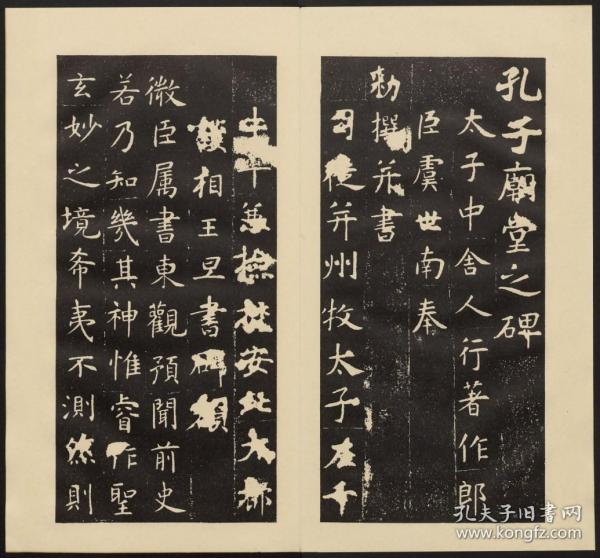 孔子廟堂之碑
太子中舍人行著作郎
臣虞世南奉
勑撰并書
司徒并州牧太子左千
牛兼檢校安北大都
護相王旦書碑額
微臣属書東觀預聞前史
若乃知幾其神惟睿作聖
玄妙之境希夷不測然則
孔夫子旧书网
www.kongfz.com